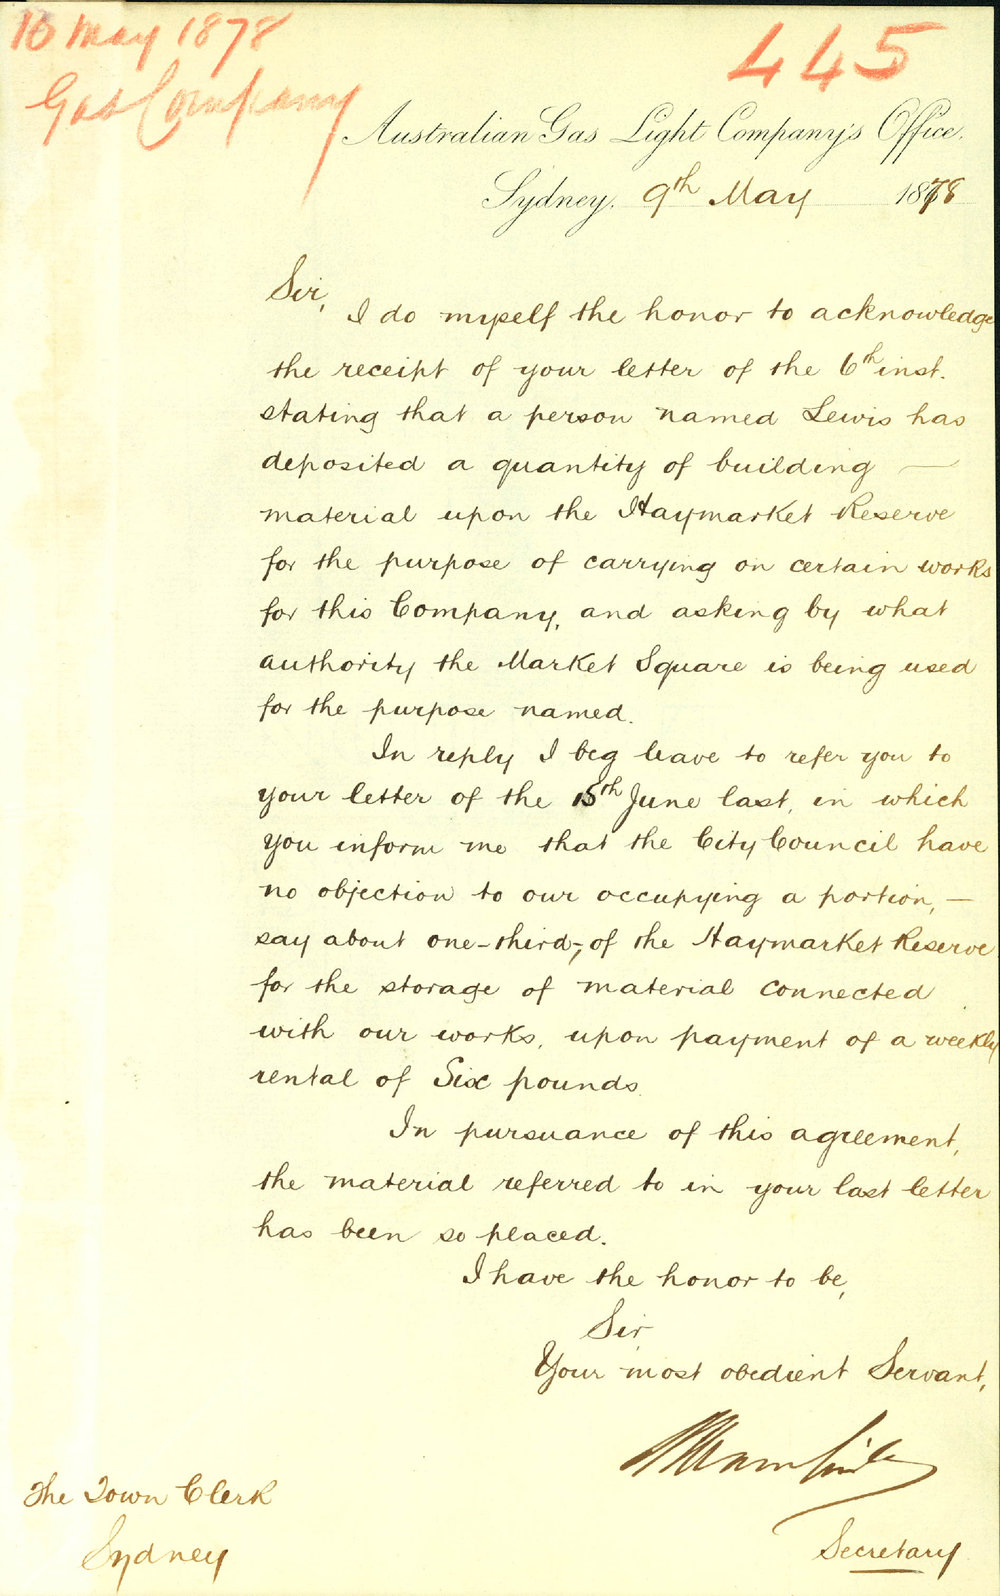 10 May 1878
Gas Company
445
Australian Gas Light Company's Office.
Sydney, 9th May 1878
Sir,
I do myself the honor to acknowledge
the receipt of your letter of the 6th inst.
stating that a person named Lewis has
deposited a quantity of building —
material upon the Haymarket Reserve
for the purpose of carrying on certain works
for this Company, and asking by what
authority the Market Square is being used
for the purpose named.
In reply I beg leave to refer you to
your letter of the 15th June last, in which
you inform me that the City Council have
no objection to our occupying a portion, —
say about one-third, of the Haymarket Reserve
for the storage of material connected
with our works, upon payment of a weekly
rental of Six pounds.
In pursuance of this agreement,
the material referred to in your last letter
has been so placed.
I have the honor to be,
Sir,
Your most obedient Servant,
Secretary
The Town Clerk
Sydney